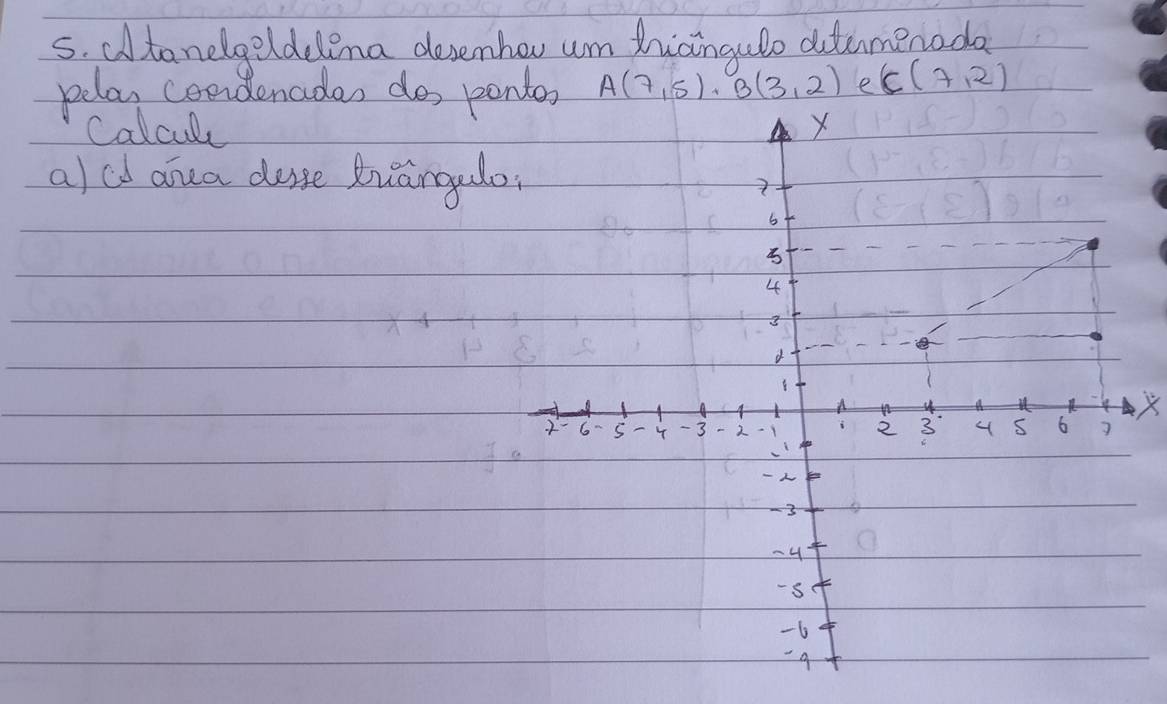 5. Atanelgildelina desenhou um triângulo determinada
pelas coordenadas dos pontos A(7,5). B(3,2) e C(7,2)
Calcule
a) A área desse triângulo;
X
7
6
5
4
3
2
1
-7 -6 -5 -4 -3 -2 -1 1 2 3 4 5 6 7 X
-1
-2
-3
-4
-5
-6
-9